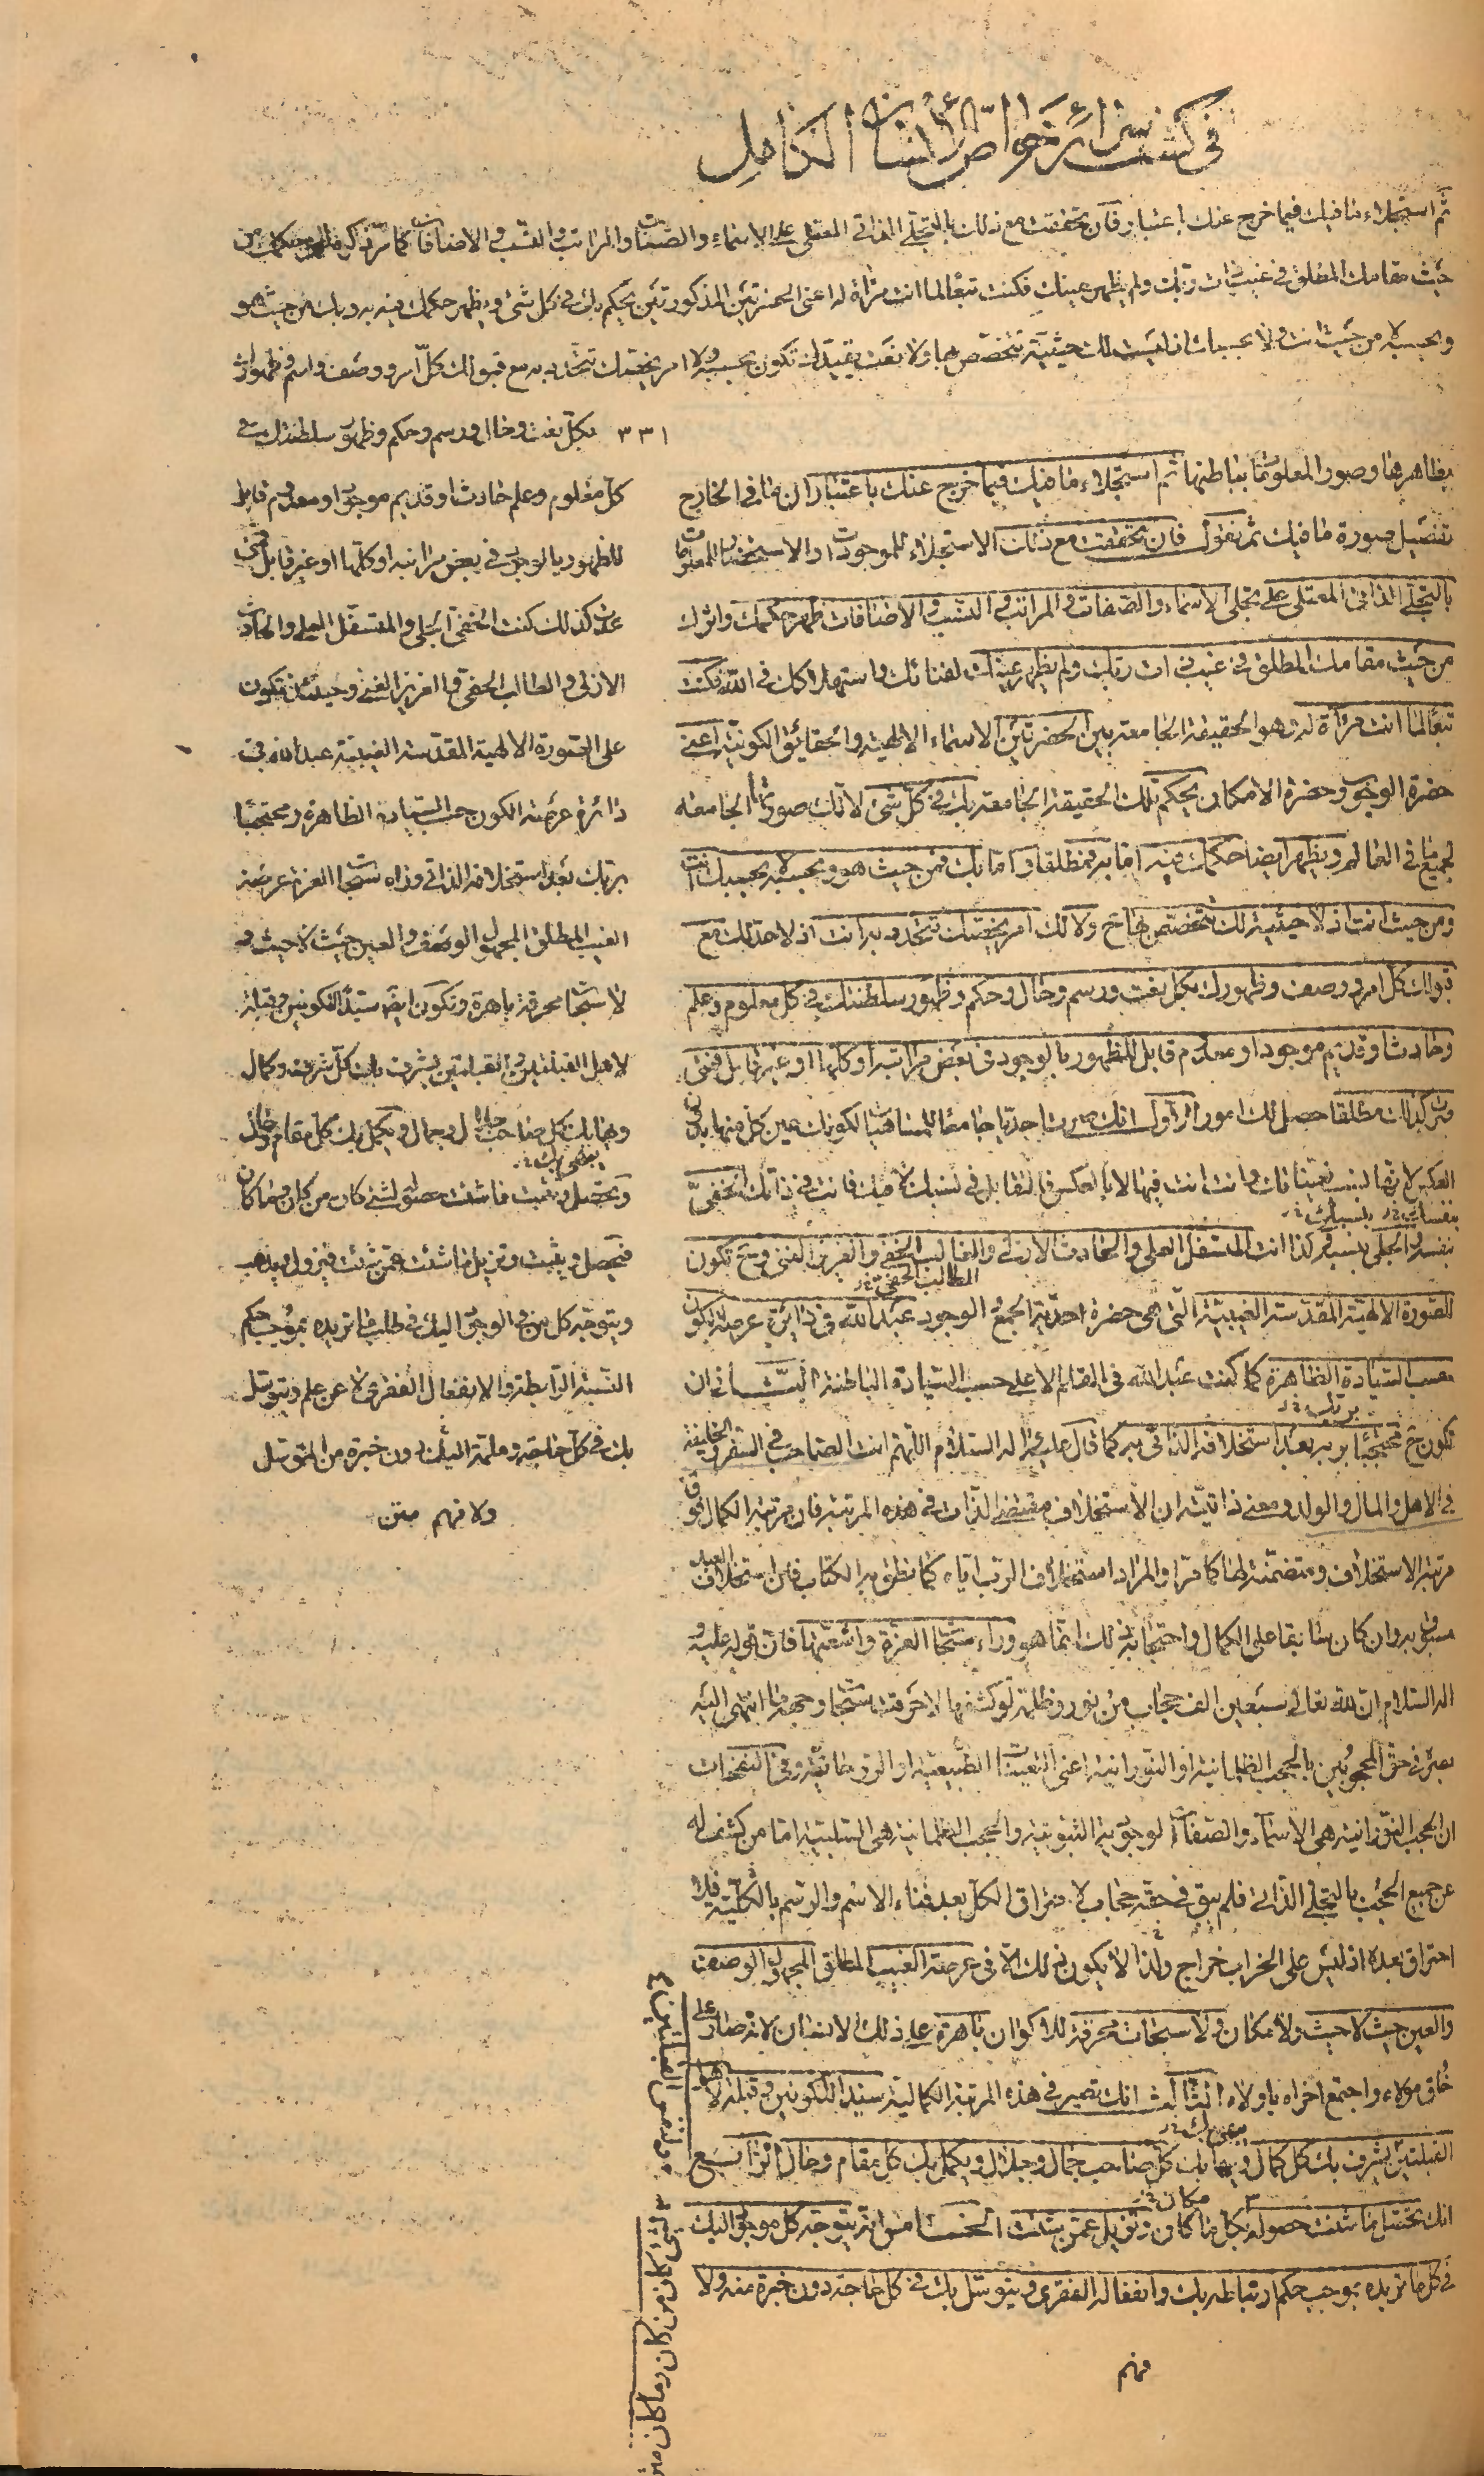 في كشف سرائر خواص الإنسان الكامل
ثم استجلاء ما فيك فيما خرج عنك باعتبار فان تحققت مع ذلك بالتجلي الذاتي المعتلي على الاسماء والصفات والمراتب والنسب والاضافات كما مر ذكره ظهر حكمك من
حيث مقامك المطلق في غيب ذات ربك ولم يظهر عينك فكنت تبعا لما انت مرآة له اعني الحضرتين المذكورتين يحكم بك في كل شئ ويظهر حكمك فيه به وبك من حيث هو
وبحسبه لا من حيث انت ولا بحسبك اذ ليست لك حيثية تتخصص بها ولا نعت يقيدك تكون بحسبه ولا امر يخصك تتحدد به مع قبولك كل امر ووصف واسم وظهورك
٣٣١ بكل نعت وحال ورسم وحكم وظهور سلطنتك في
كل معلوم وعلم حادث او قديم موجود او معدوم قابل
للظهور بالوجود في بعض مراتبه او كلها او غير قابل فمتى
عدت كذلك كنت الخفي الجلي والمستفل العلي والحادث
الازلي والطالب الحفي والعزيز الغني وحينئذ تكون
على الصورة الالهية المقدسة الغيبية عبد الله في
دائرة عرصة الكون حسب السيادة الظاهرة ومحتجبا
بربك بعد استخلافه الذاتي وراء سبحات العزة عرصة
الغيب المطلق المجهول الوصف والعين حيث لا حيث و
لا سبحات محرقة باهرة وتكون ايضا سيد الكونين وقبلة
لاهل القبلتين القبلتين يشرف بك كل شرف وكمال
وبهاء بك كل صاحب جلال وجمال ويكمل بك كل مقام وحال
وتحصل وتثبت ما شئت حصوله لشئ كان من كان وما كان
فيحصل ويثبت وتزيل ما شئت عمن شئت فيزول ويذهب
ويتوجه كل من في الوجود اليك في طلب ما تريده بموجب حكم
النسبة الرابطة والانفعال الفقري لا عن علم ويتوسل
بك في كل حاجة وملمة اليك دون خبرة من المتوسل
ولا فهم متن
بظاهرها وصور المعلومات بباطنها ثم استجلاء ما فيك فيما خرج عنك باعتبار ان ما في الخارج
تفصيل صورة ما فيك ثم نقول فان تحققت مع ذلك الاستجلاء للموجودات او الاستحضار للمعلومات
بالتجلي الذاتي المعتلي على تجلي الاسماء والصفات والمراتب والنسب والاضافات ظهر حكمك واثرك
من حيث مقامك المطلق في غيب ذات ربك ولم يظهر عينك لفنائك واستهلاكك في الله فكنت
تبعا لما انت مرآة له وهو الحقيقة الجامعة بين الحضرتين الاسماء الالهية والحقائق الكونية اعني
حضرة الوجوب وحضرة الامكان يحكم تلك الحقيقة الجامعة بك في كل شئ لانك صورتها الجامعة
لجميع ما في العالم ويظهر ايضا حكمك فيه اما به فمطلقا واما بك فمن حيث هو وبحسبه لا بحسبك انت
ومن حيث انت اذ لا حيثية لك تتخصص بها ح ولا لك امر يخصك تتحدد به انت اذ لا حد لك مع
قبولك كل امر ووصف وظهورك بكل نعت ورسم وحال وحكم وظهور سلطنتك في كل معلوم وعلم
وحادث او قديم موجود او معدوم قابل للظهور بالوجود في بعض مراتبه او كلها او غير قابل فمتى
صرت كذلك مطلقا حصل لك امور الاول انك صرت احديا جامعا للمتنافيات لكونك عين كل منها بل
العكس لانها نسب تعيناتك وانت انت فيها لا بالعكس فالتقابل في نسبك لا فيك فانت في ذاتك الخفي
بنفسك الجلي بنسبك وكذا انت المستفل العلي والحادث الازلي والطالب الحفي والعزيز الغني وح تكون
الصورة الالهية المقدسة الغيبية التي هي حضرة احدية الجمع الوجود عبد الله في دائرة عرصة الكون
حسب السيادة الظاهرة كما كنت عبد الله في القلم الاعلى حسب السيادة الباطنة الثاني ان
تكون ح محتجبا بربه بعد استخلافه الذاتي به كما قال عليه وآله السلام اللهم انت الصاحب في السفر والخليفة
في الاهل والمال والولد ومعنى ذاتيته ان الاستخلاف مقتضى الذات في هذه المرتبة فان مرتبة الكمال فوق
مرتبة الاستخلاف ومتضمنة لها كما مر والمراد استخلاف الرب اياه كما نطق به الكتاب فان استخلاف العبد
مسبوق به وان كان سابقا على الكمال واحتجابه بذلك انما هو وراء سبحات العزة واشعتها فان قوله عليه و
اله السلام ان لله تعالى سبعين الف حجاب من نور وظلمة لو كشفها لاحرقت سبحات وجهه ما انتهى اليه
بصره في حق المحجوبين بالحجب الظلمانية او النورانية اعني التعينات الطبيعية او الروحانية وفي النفحات
ان الحجب النورانية هي الاسماء والصفات الوجودية الثبوتية والحجب الظلمانية هي السلبية اما من كشف له
عن جميع الحجب بالتجلي الذاتي فلم يبق في حقه حجاب لاحتراق الكل بعد فناء الاسم والرسم بالكلية فلا
احتراق بعده اذ ليس على الخراب خراج ولذا لا يكون ذلك الا في عرصة الغيب المطلق المجهول الوصف
والعين حيث لا حيث ولا مكان ولا سبحات محرقة للاكوان باهرة على ذلك الانسان لانه صار على
خلق مولاه واجتمع اخراه باولاه الثالث انك تصير في هذه المرتبة الكمالية سيد الكونين وقبلة لاهل
القبلتين يشرف بك كل كمال وبهاء بك كل صاحب جمال وجلال ويكمل بك كل مقام وحال الرابع
انك تحصل ما شئت حصوله بكل ما كان وتزيل عمن شئت الخامس انه يتوجه كل موجود اليك
في كل ما تريده بموجب حكم ارتباطه بك وانفعاله الفقري ويتوسل بك في كل حاجة دون خبرة منه ولا
فهم